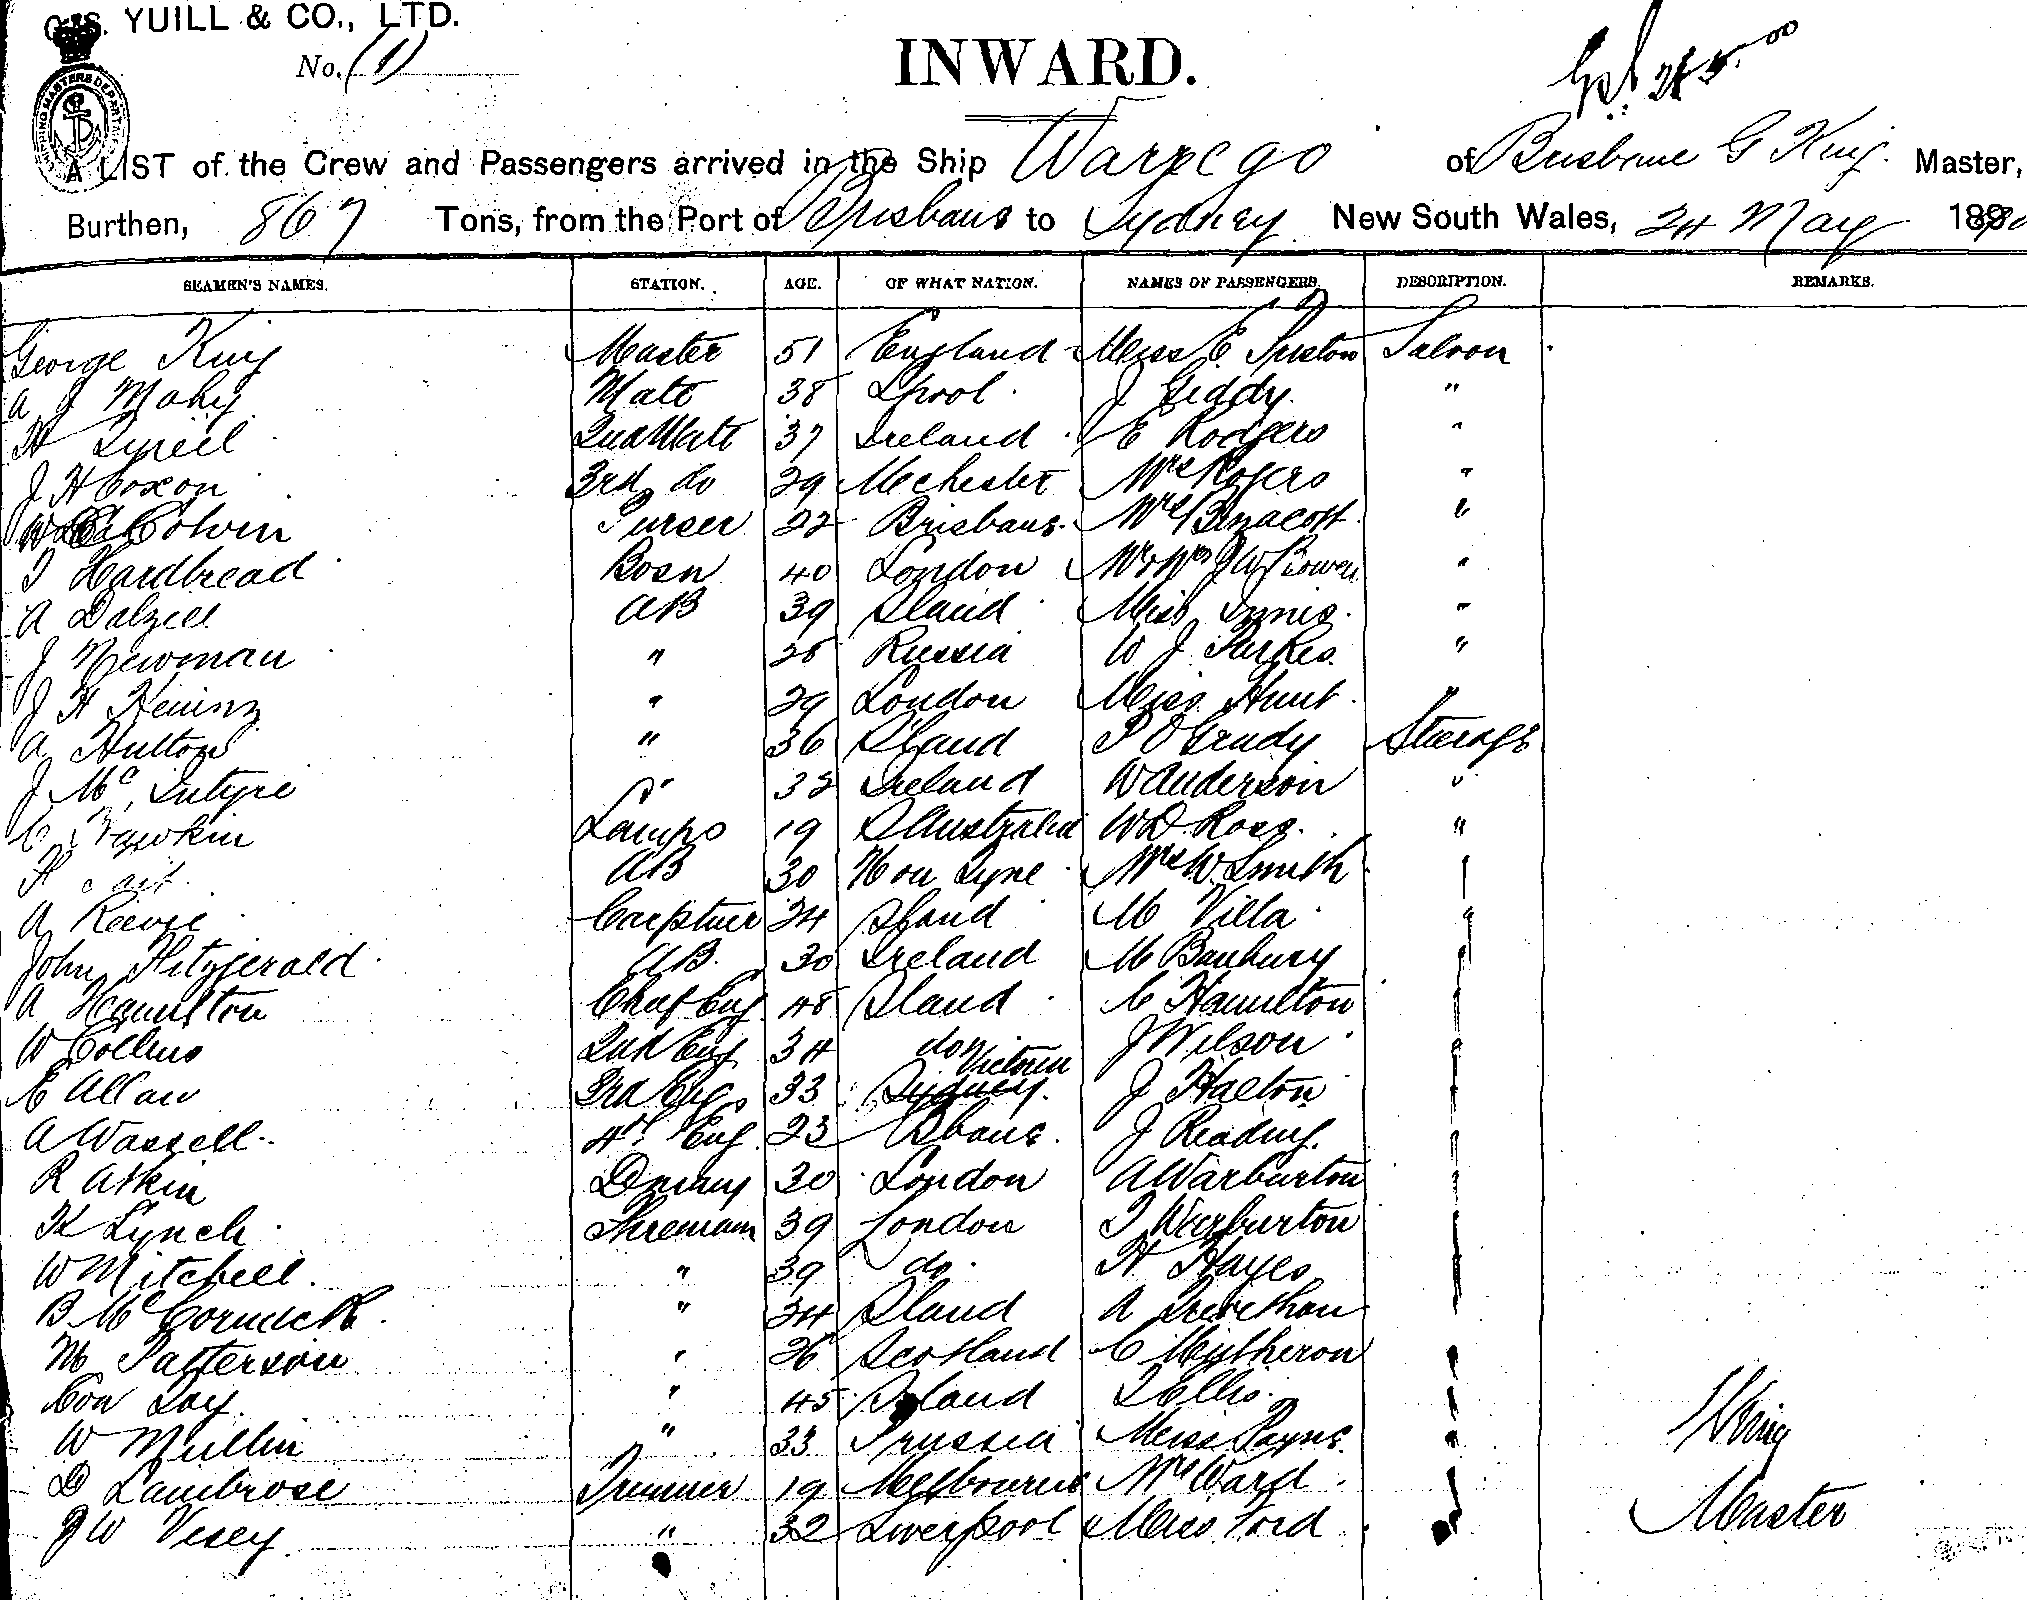 G. S. YUILL & CO., LTD.
No. (1)
INWARD.
A LIST of the Crew and Passengers arrived in the Ship Warrego of Brisbane G King Master,
Burthen, 867 Tons, from the Port of Brisbane to Sydney New South Wales, 24 May 189
SEAMEN'S NAMES. STATION. AGE. OF WHAT NATION. NAMES OF PASSENGERS. DESCRIPTION. REMARKS.
George King Master 51 England Miss E. Saloon
A J Mate 38 Lpool J Geddy "
H Tyrell 2nd Mate 37 Ireland E Rodgers "
J H Coxon 3rd do 29 Mchester Mrs Rogers "
W Colvin Purser 22 Brisbane Mrs "
T Hardbread Bosn 40 London Mr & Mrs J W Bowen "
A Dalzell AB 39 Sland Miss Innis "
J Newman " Russia W J Parkes "
J H " 29 London Miss Hunt "
A Hutton " 36 Sland P O'Grady Steerage
J McIntyre " 32 Ireland W Anderson "
C Hawkin Lamps 19 S Australia W D Ross "
H AB 30 N on Tyne Mrs W Smith
A Reevie Carptner 24 Sland M Villa
John Fitzgerald AB 30 Ireland M Banbury
A Hamilton Chief Eng 48 Sland C Hamilton
W Collins 2nd Eng 34 do J Wilson
C Allan 3rd Eng 33 Sydney Victoria J Halton
A Wassell 4th Eng 23 Bbane J Reading
R Atkin Dnkey 30 London A Warburton
K Lynch Fireman 39 London T Warburton
W Mitchell " 39 do H Hayes
B McCormick " 34 Sland A Trevethan
M Patterson " Scotland C
Con " 45 Sland Ellis
W Mullin " 33 Prussia Miss Payne
D Lambrose Trimmer 19 Melbourne Mrs Ward
J W Vesey " 32 Liverpool Miss Ford
G King
Master